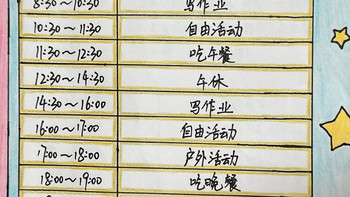 8:30~10:30 写作业
10:30~11:30 自由活动
11:30~12:30 吃午餐
12:30~14:30 午休
14:30~16:00 写作业
16:00~17:00 自由活动
17:00~18:00 户外活动
18:00~19:00 吃晚餐